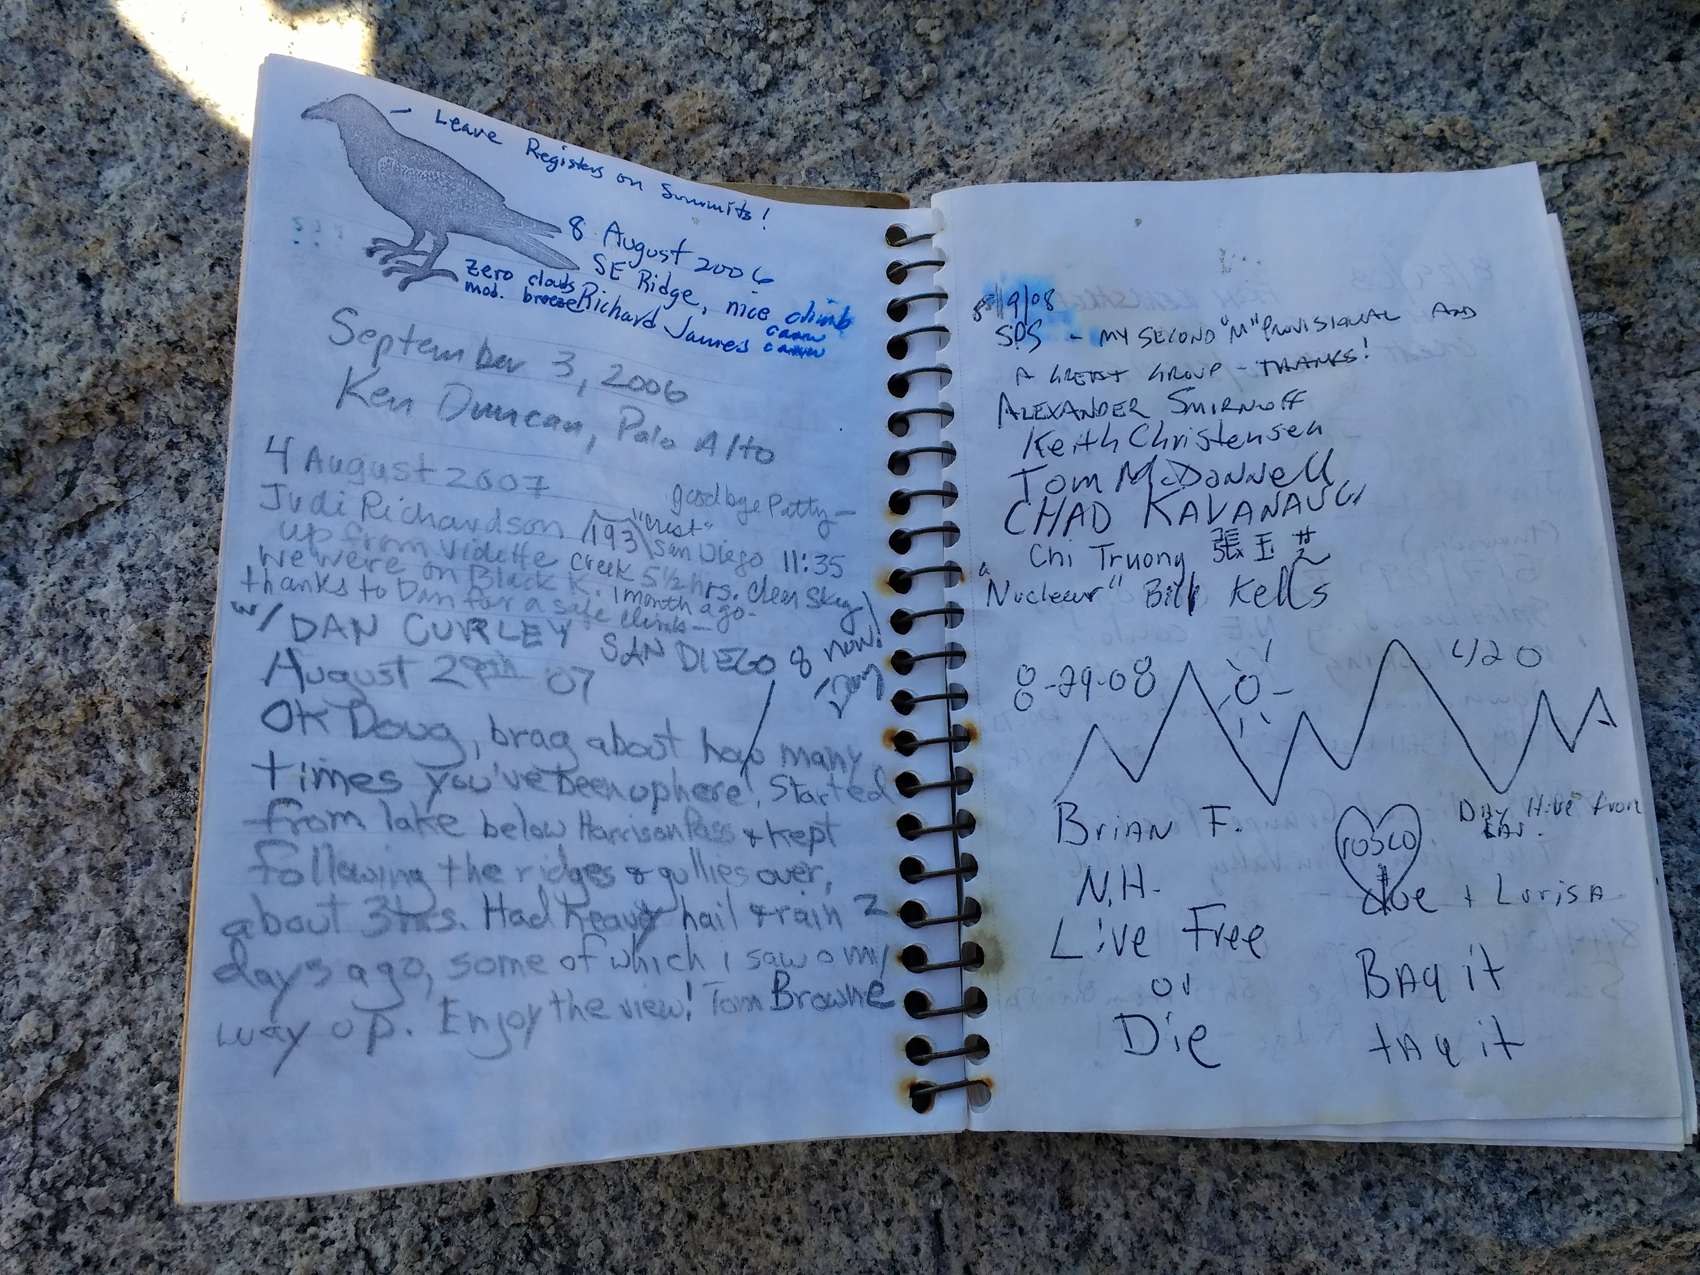 Leave Registers on Summits!
8 August 2006
SE Ridge, nice climb
zero clouds
mod. breeze
Richard James
caaw
caaaw
September 3, 2006
Ken Duncan, Palo Alto
4 August 2007
goodbye Patty—
Judi Richardson /193\ "crest" San Diego 11:35
up from Vidette Creek 5½ hrs. clear sky
we were on Black K. 1 month ago—
thanks to Dan for a safe climb—
w/ DAN CURLEY SAN DIEGO 8 now!
August 29th '07
OK Doug, brag about how many
times you've been up here! Started
from lake below Harrison Pass & kept
following the ridges & gullies over,
about 3 hrs. Had heavy hail & rain 2
days ago, some of which I saw on my
way up. Enjoy the view! Tom Browne
8/9/08
SPS - MY SECOND "M" PROVISIONAL AND
A GREAT GROUP - THANKS!
ALEXANDER SMIRNOFF
Keith Christensen
Tom McDonnell
CHAD KAVANAUGH
Chi Truong 張玉
"Nuclear" Bill Kells
8-29-08
420
Brian F.
N.H.
Live Free
or
Die
rosco
Day Hike from
Joe + Lorisa
BAg it
tAg it